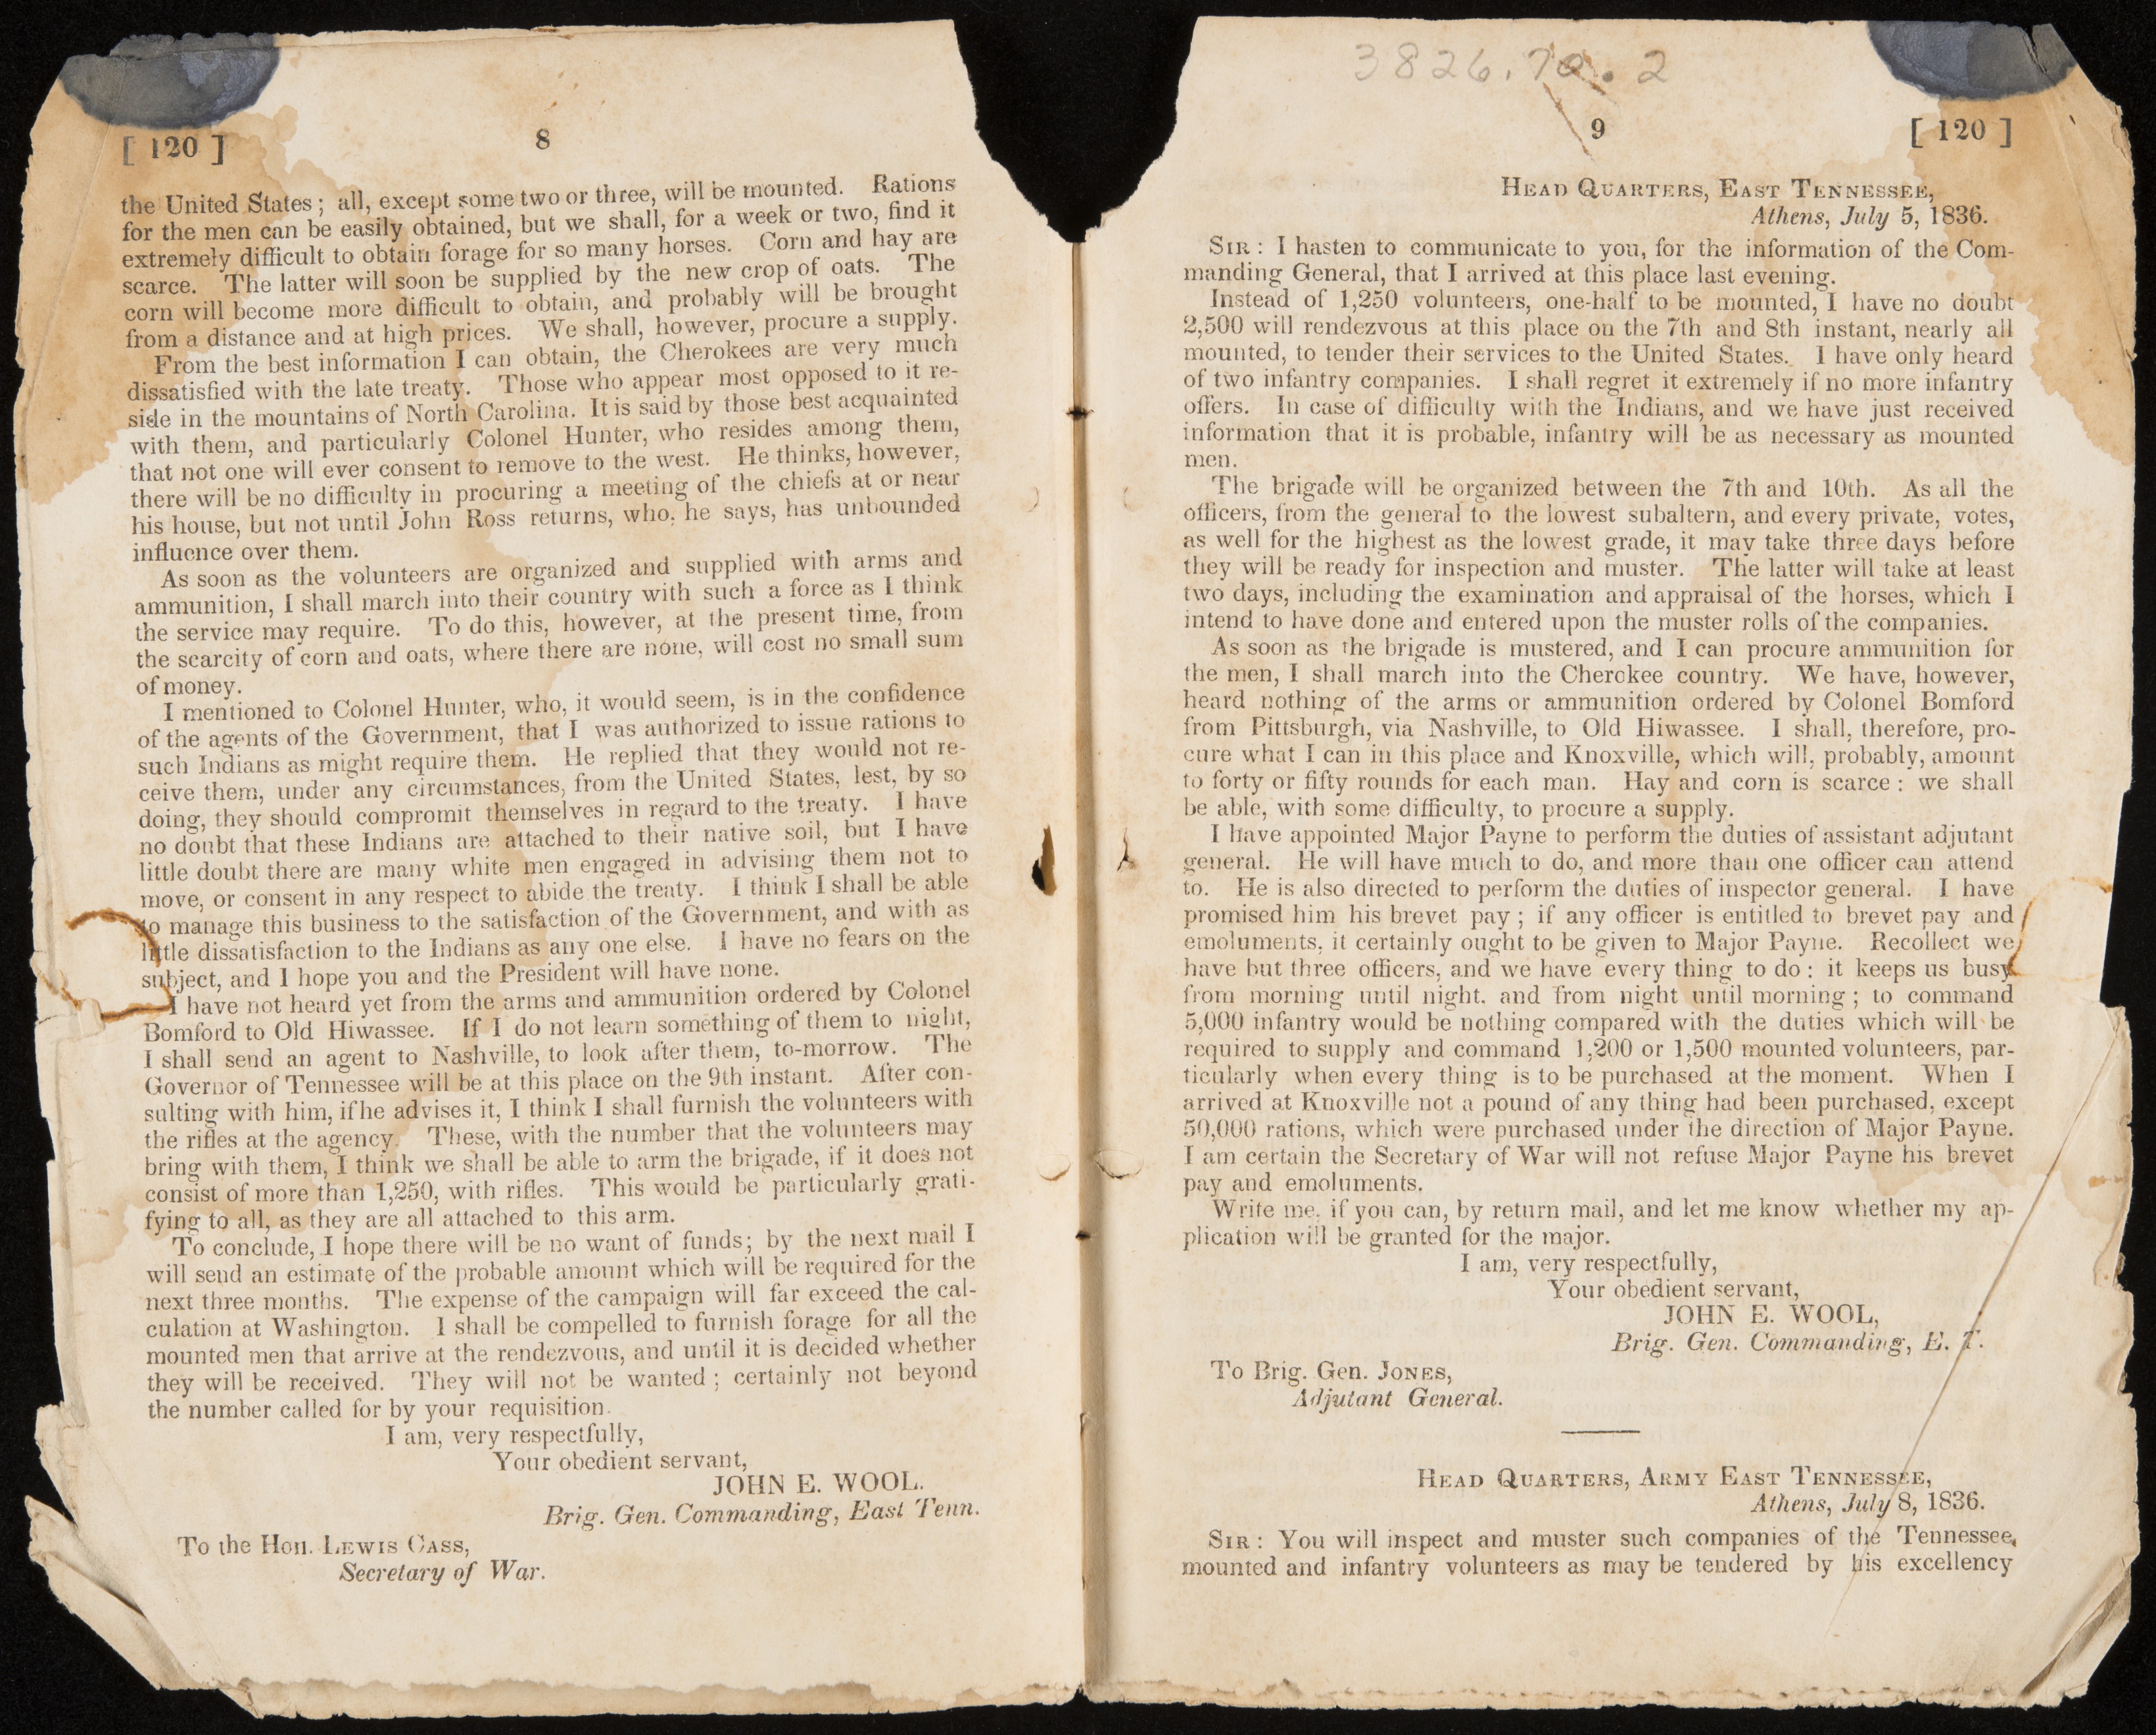 [ 120 ]
8
the United States; all, except some two or three, will be mounted. Rations
for the men can be easily obtained, but we shall, for a week or two, find it
extremely difficult to obtain forage for so many horses. Corn and hay are
scarce. The latter will soon be supplied by the new crop of oats. The
corn will become more difficult to obtain, and probably will be brought
from a distance and at high prices. We shall, however, procure a supply.
From the best information I can obtain, the Cherokees are very much
dissatisfied with the late treaty. Those who appear most opposed to it re-
side in the mountains of North Carolina. It is said by those best acquainted
with them, and particularly Colonel Hunter, who resides among them,
that not one will ever consent to remove to the west. He thinks, however,
there will be no difficulty in procuring a meeting of the chiefs at or near
his house, but not until John Ross returns, who, he says, has unbounded
influence over them.
As soon as the volunteers are organized and supplied with arms and
ammunition, I shall march into their country with such a force as I think
the service may require. To do this, however, at the present time, from
the scarcity of corn and oats, where there are none, will cost no small sum
of money.
I mentioned to Colonel Hunter, who, it would seem, is in the confidence
of the agents of the Government, that I was authorized to issue rations to
such Indians as might require them. He replied that they would not re-
ceive them, under any circumstances, from the United States, lest, by so
doing, they should compromit themselves in regard to the treaty. I have
no doubt that these Indians are attached to their native soil, but I have
little doubt there are many white men engaged in advising them not to
move, or consent in any respect to abide the treaty. I think I shall be able
to manage this business to the satisfaction of the Government, and with as
little dissatisfaction to the Indians as any one else. I have no fears on the
subject, and I hope you and the President will have none.
I have not heard yet from the arms and ammunition ordered by Colonel
Bomford to Old Hiwassee. If I do not learn something of them to night,
I shall send an agent to Nashville, to look after them, to-morrow. The
Governor of Tennessee will be at this place on the 9th instant. After con-
sulting with him, if he advises it, I think I shall furnish the volunteers with
the rifles at the agency. These, with the number that the volunteers may
bring with them, I think we shall be able to arm the brigade, if it does not
consist of more than 1,250, with rifles. This would be particularly grati-
fying to all, as they are all attached to this arm.
To conclude, I hope there will be no want of funds; by the next mail I
will send an estimate of the probable amount which will be required for the
next three months. The expense of the campaign will far exceed the cal-
culation at Washington. I shall be compelled to furnish forage for all the
mounted men that arrive at the rendezvous, and until it is decided whether
they will be received. They will not be wanted; certainly not beyond
the number called for by your requisition.
I am, very respectfully,
Your obedient servant,
JOHN E. WOOL.
Brig. Gen. Commanding, East Tenn.
To the Hon. LEWIS CASS,
Secretary of War.
3826.70.2
9
[ 120 ]
HEAD QUARTERS, EAST TENNESSEE,
Athens, July 5, 1836.
SIR: I hasten to communicate to you, for the information of the Com-
manding General, that I arrived at this place last evening.
Instead of 1,250 volunteers, one-half to be mounted, I have no doubt
2,500 will rendezvous at this place on the 7th and 8th instant, nearly all
mounted, to tender their services to the United States. I have only heard
of two infantry companies. I shall regret it extremely if no more infantry
offers. In case of difficulty with the Indians, and we have just received
information that it is probable, infantry will be as necessary as mounted
men.
The brigade will be organized between the 7th and 10th. As all the
officers, from the general to the lowest subaltern, and every private, votes,
as well for the highest as the lowest grade, it may take three days before
they will be ready for inspection and muster. The latter will take at least
two days, including the examination and appraisal of the horses, which I
intend to have done and entered upon the muster rolls of the companies.
As soon as the brigade is mustered, and I can procure ammunition for
the men, I shall march into the Cherokee country. We have, however,
heard nothing of the arms or ammunition ordered by Colonel Bomford
from Pittsburgh, via Nashville, to Old Hiwassee. I shall, therefore, pro-
cure what I can in this place and Knoxville, which will, probably, amount
to forty or fifty rounds for each man. Hay and corn is scarce: we shall
be able, with some difficulty, to procure a supply.
I have appointed Major Payne to perform the duties of assistant adjutant
general. He will have much to do, and more than one officer can attend
to. He is also directed to perform the duties of inspector general. I have
promised him his brevet pay; if any officer is entitled to brevet pay and
emoluments, it certainly ought to be given to Major Payne. Recollect we
have but three officers, and we have every thing to do: it keeps us busy
from morning until night, and from night until morning; to command
5,000 infantry would be nothing compared with the duties which will be
required to supply and command 1,200 or 1,500 mounted volunteers, par-
ticularly when every thing is to be purchased at the moment. When I
arrived at Knoxville not a pound of any thing had been purchased, except
50,000 rations, which were purchased under the direction of Major Payne.
I am certain the Secretary of War will not refuse Major Payne his brevet
pay and emoluments.
Write me, if you can, by return mail, and let me know whether my ap-
plication will be granted for the major.
I am, very respectfully,
Your obedient servant,
JOHN E. WOOL,
Brig. Gen. Commanding, E. T.
To Brig. Gen. JONES,
Adjutant General.
HEAD QUARTERS, ARMY EAST TENNESSEE,
Athens, July 8, 1836.
SIR: You will inspect and muster such companies of the Tennessee
mounted and infantry volunteers as may be tendered by his excellency